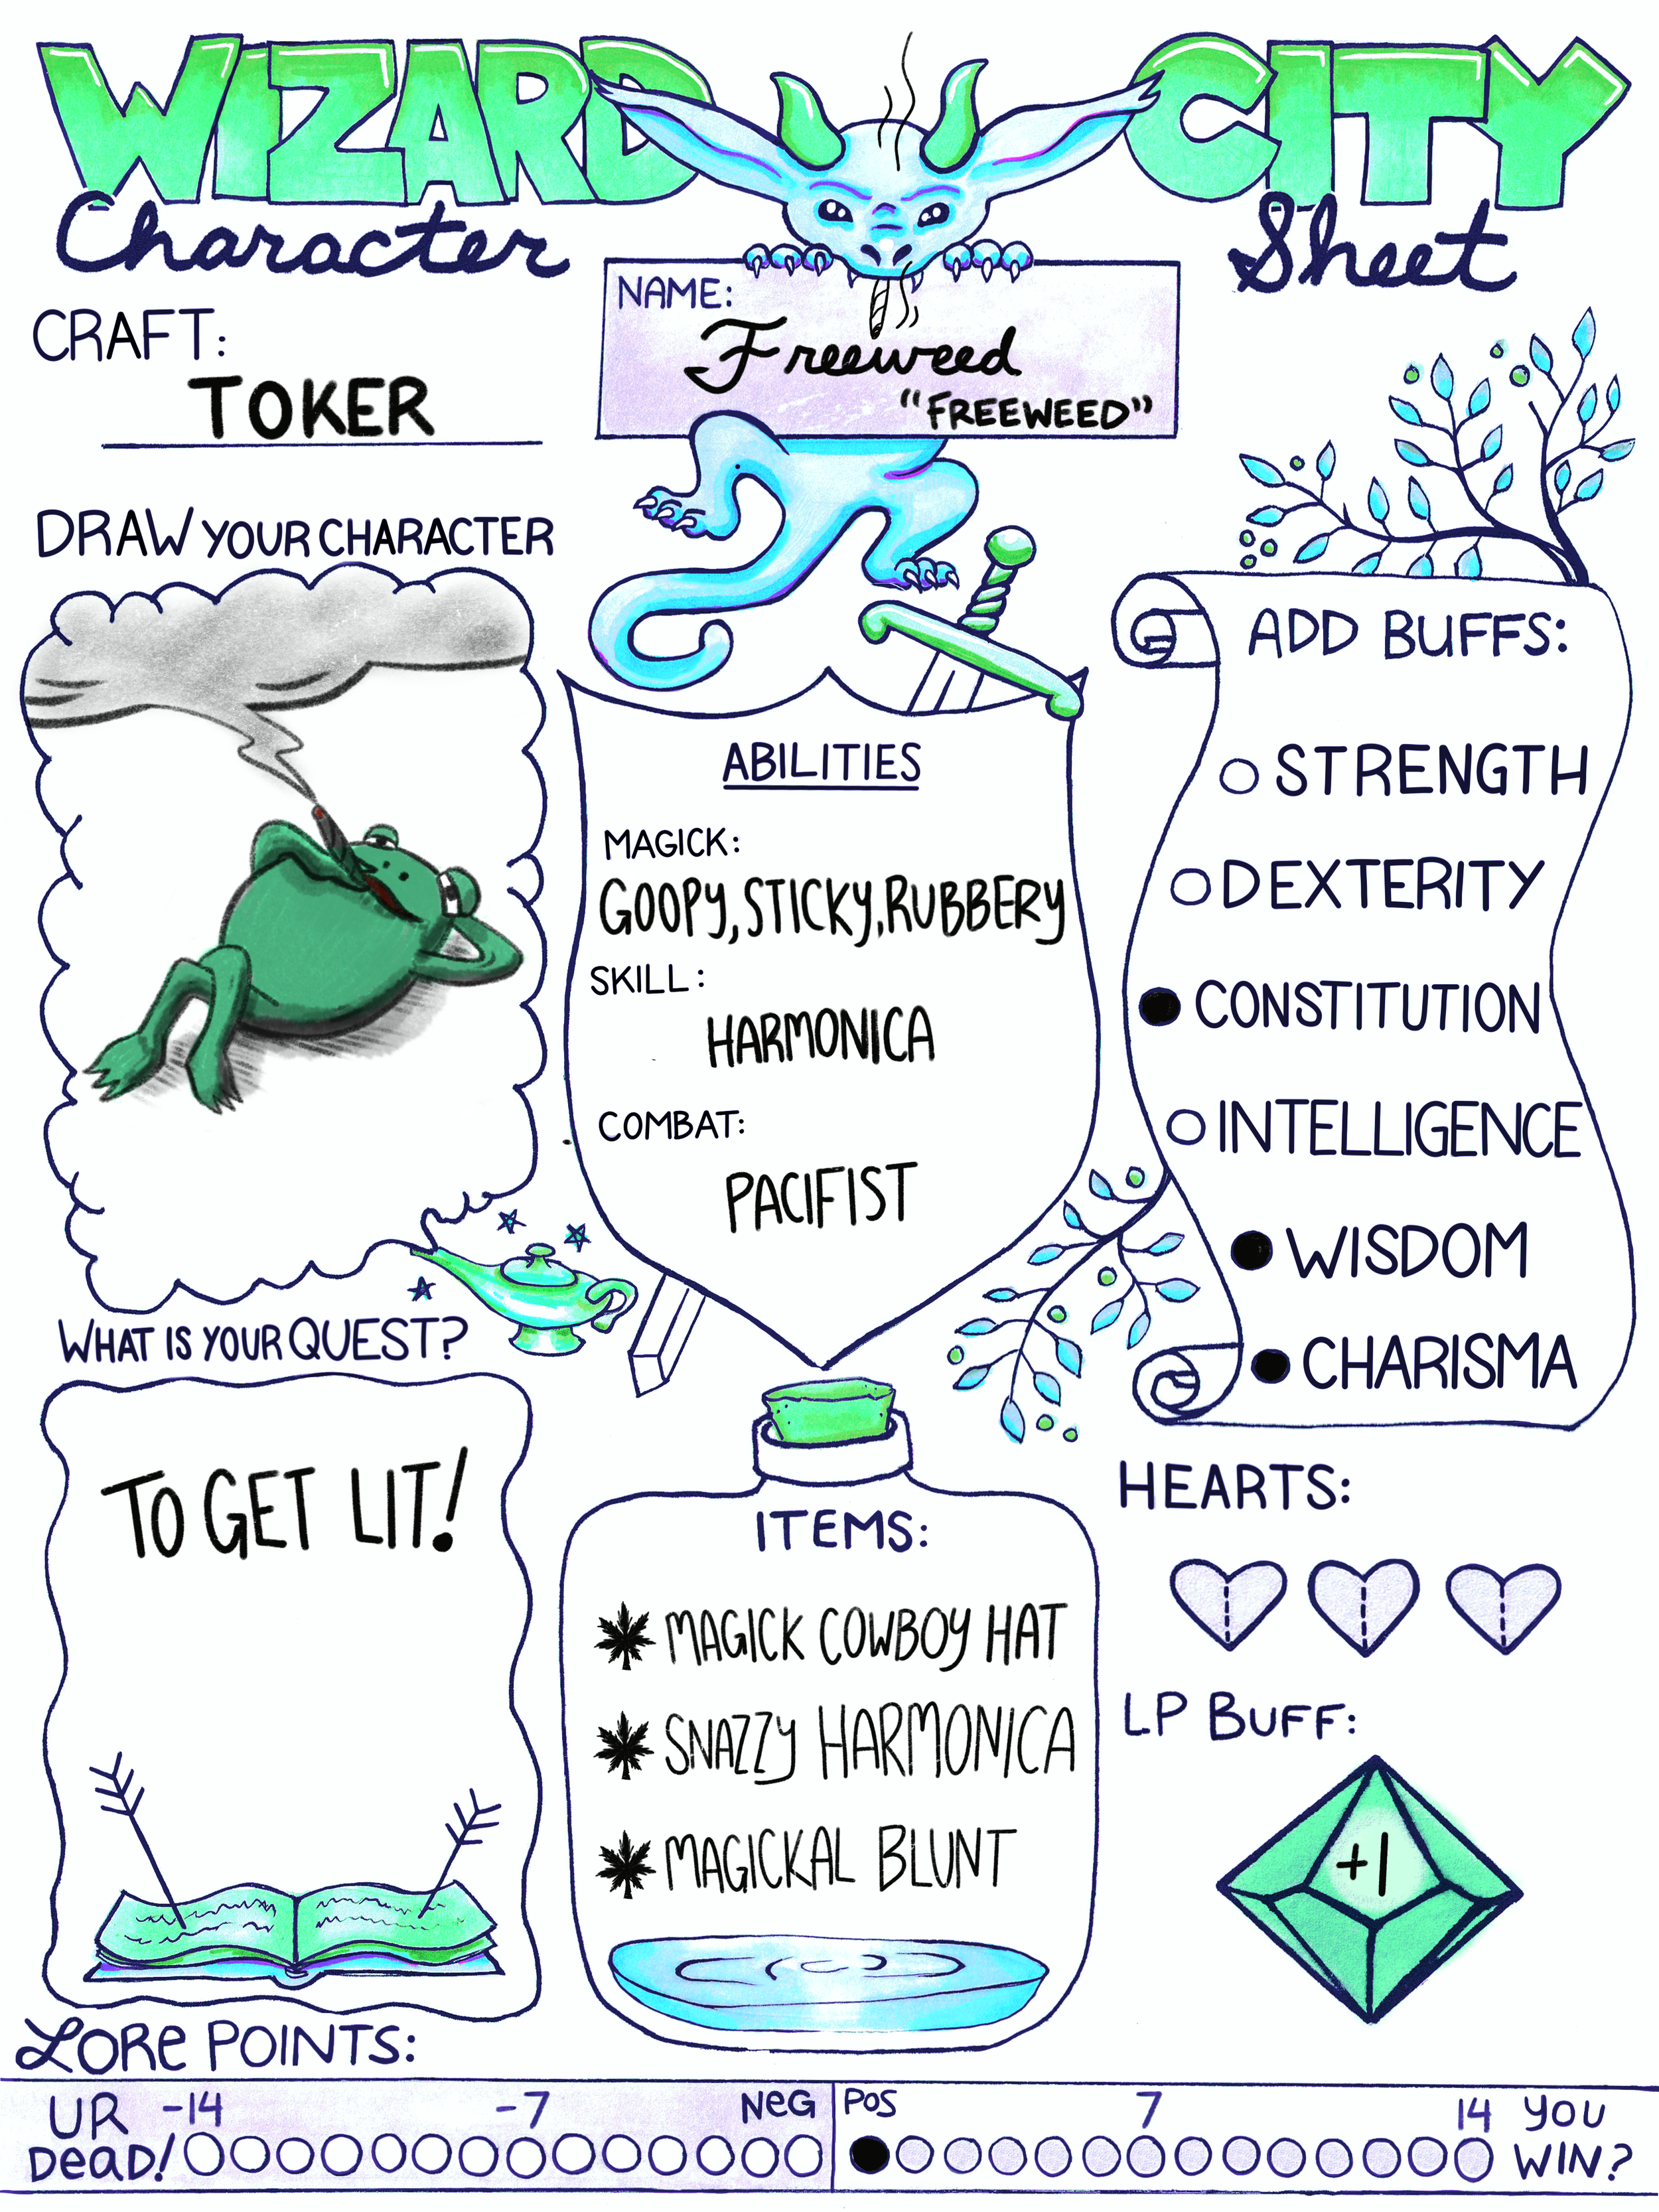 WIZARD CITY
Character Sheet
CRAFT:
TOKER
NAME:
Freeweed
"FREEWEED"
DRAW YOUR CHARACTER
ABILITIES
MAGICK:
GOOPY, STICKY, RUBBERY
SKILL:
HARMONICA
COMBAT:
PACIFIST
ADD BUFFS:
STRENGTH
DEXTERITY
CONSTITUTION
INTELLIGENCE
WISDOM
CHARISMA
WHAT IS YOUR QUEST?
TO GET LIT!
ITEMS:
MAGICK COWBOY HAT
SNAZZY HARMONICA
MAGICKAL BLUNT
HEARTS:
LP BUFF:
+1
LORe POINTS:
UR DeAD! -14 -7 NeG
POS 7 14 YOU WIN?